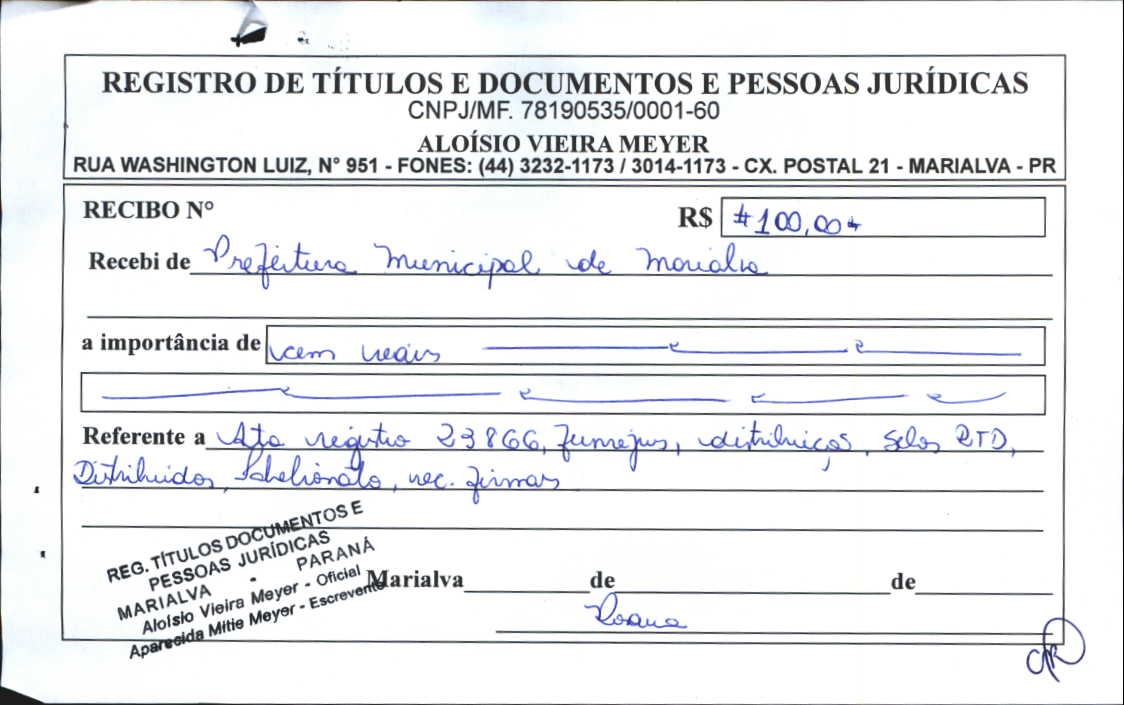 REGISTRO DE TÍTULOS E DOCUMENTOS E PESSOAS JURÍDICAS
CNPJ/MF. 78190535/0001-60
ALOÍSIO VIEIRA MEYER
RUA WASHINGTON LUIZ, N° 951 - FONES: (44) 3232-1173 / 3014-1173 - CX. POSTAL 21 - MARIALVA - PR
RECIBO N° R$ #100,00#
Recebi de Prefeitura Municipal de Marialva
a importância de cem reais
Referente a Ata registro 23866, Funrejus, distribuição, selos RTD,
Distribuidor, Tabelionato, rec. firmas
REG. TÍTULOS DOCUMENTOS E
PESSOAS JURÍDICAS
MARIALVA - PARANÁ
Aloísio Vieira Meyer - Oficial
Aparecida Mitie Meyer - Escrevente
Marialva de de
Rosana